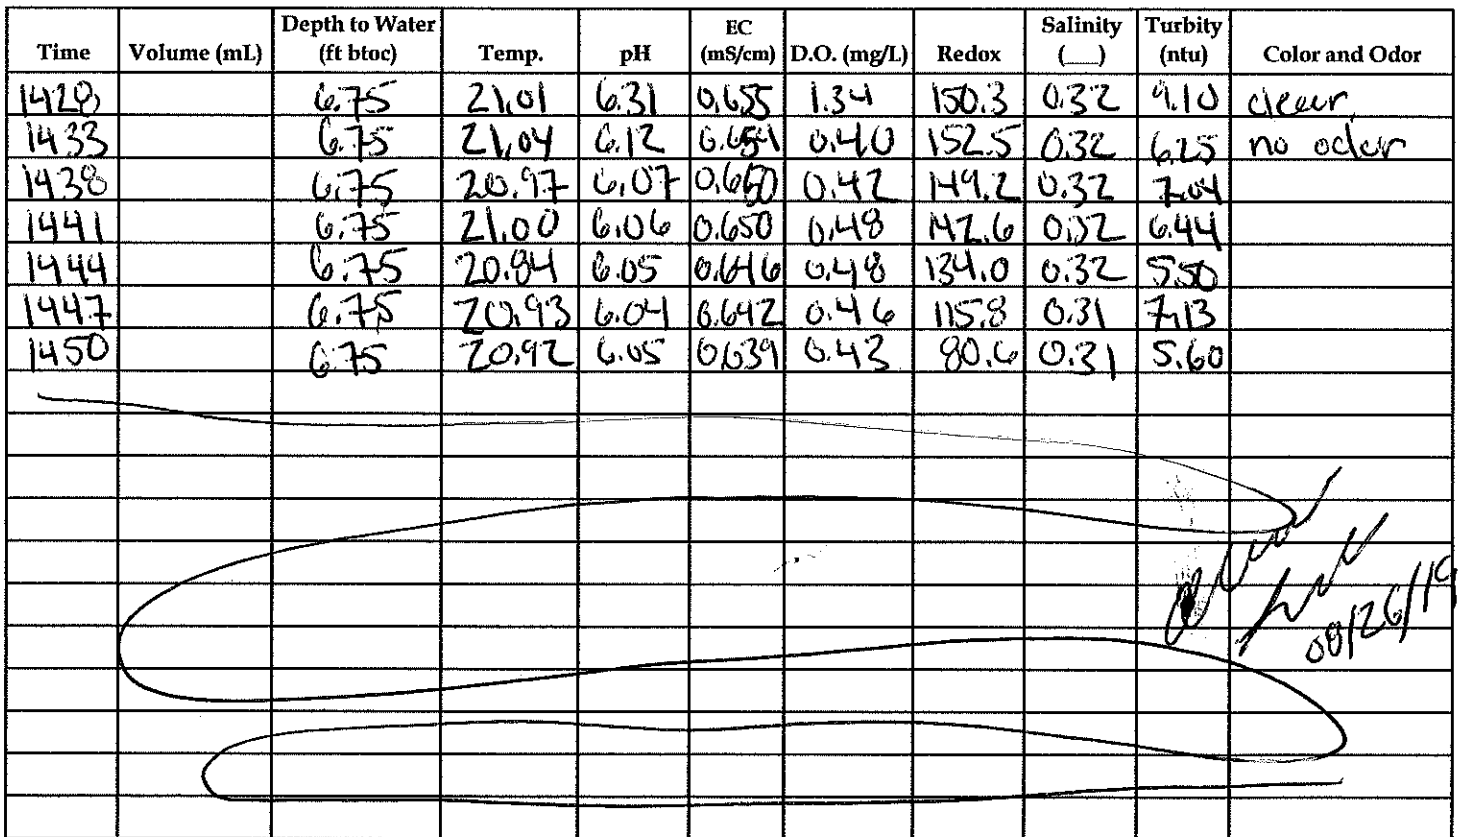 Time Volume (mL) Depth to Water (ft btoc) Temp. pH EC (mS/cm) D.O. (mg/L) Redox Salinity (___) Turbity (ntu) Color and Odor
1428 6.75 21.01 6.31 0.655 1.34 150.3 0.32 9.10 clear,
1433 6.75 21.04 6.12 0.654 0.40 152.5 0.32 6.25 no odor
1438 6.75 20.97 6.07 0.660 0.42 149.2 0.32 7.04
1441 6.75 21.00 6.06 0.650 0.48 142.6 0.32 6.44
1444 6.75 20.84 6.05 0.646 0.48 134.0 0.32 5.50
1447 6.75 20.93 6.04 0.642 0.46 115.8 0.31 7.13
1450 6.75 20.92 6.05 0.639 0.43 80.6 0.31 5.60
08/26/19